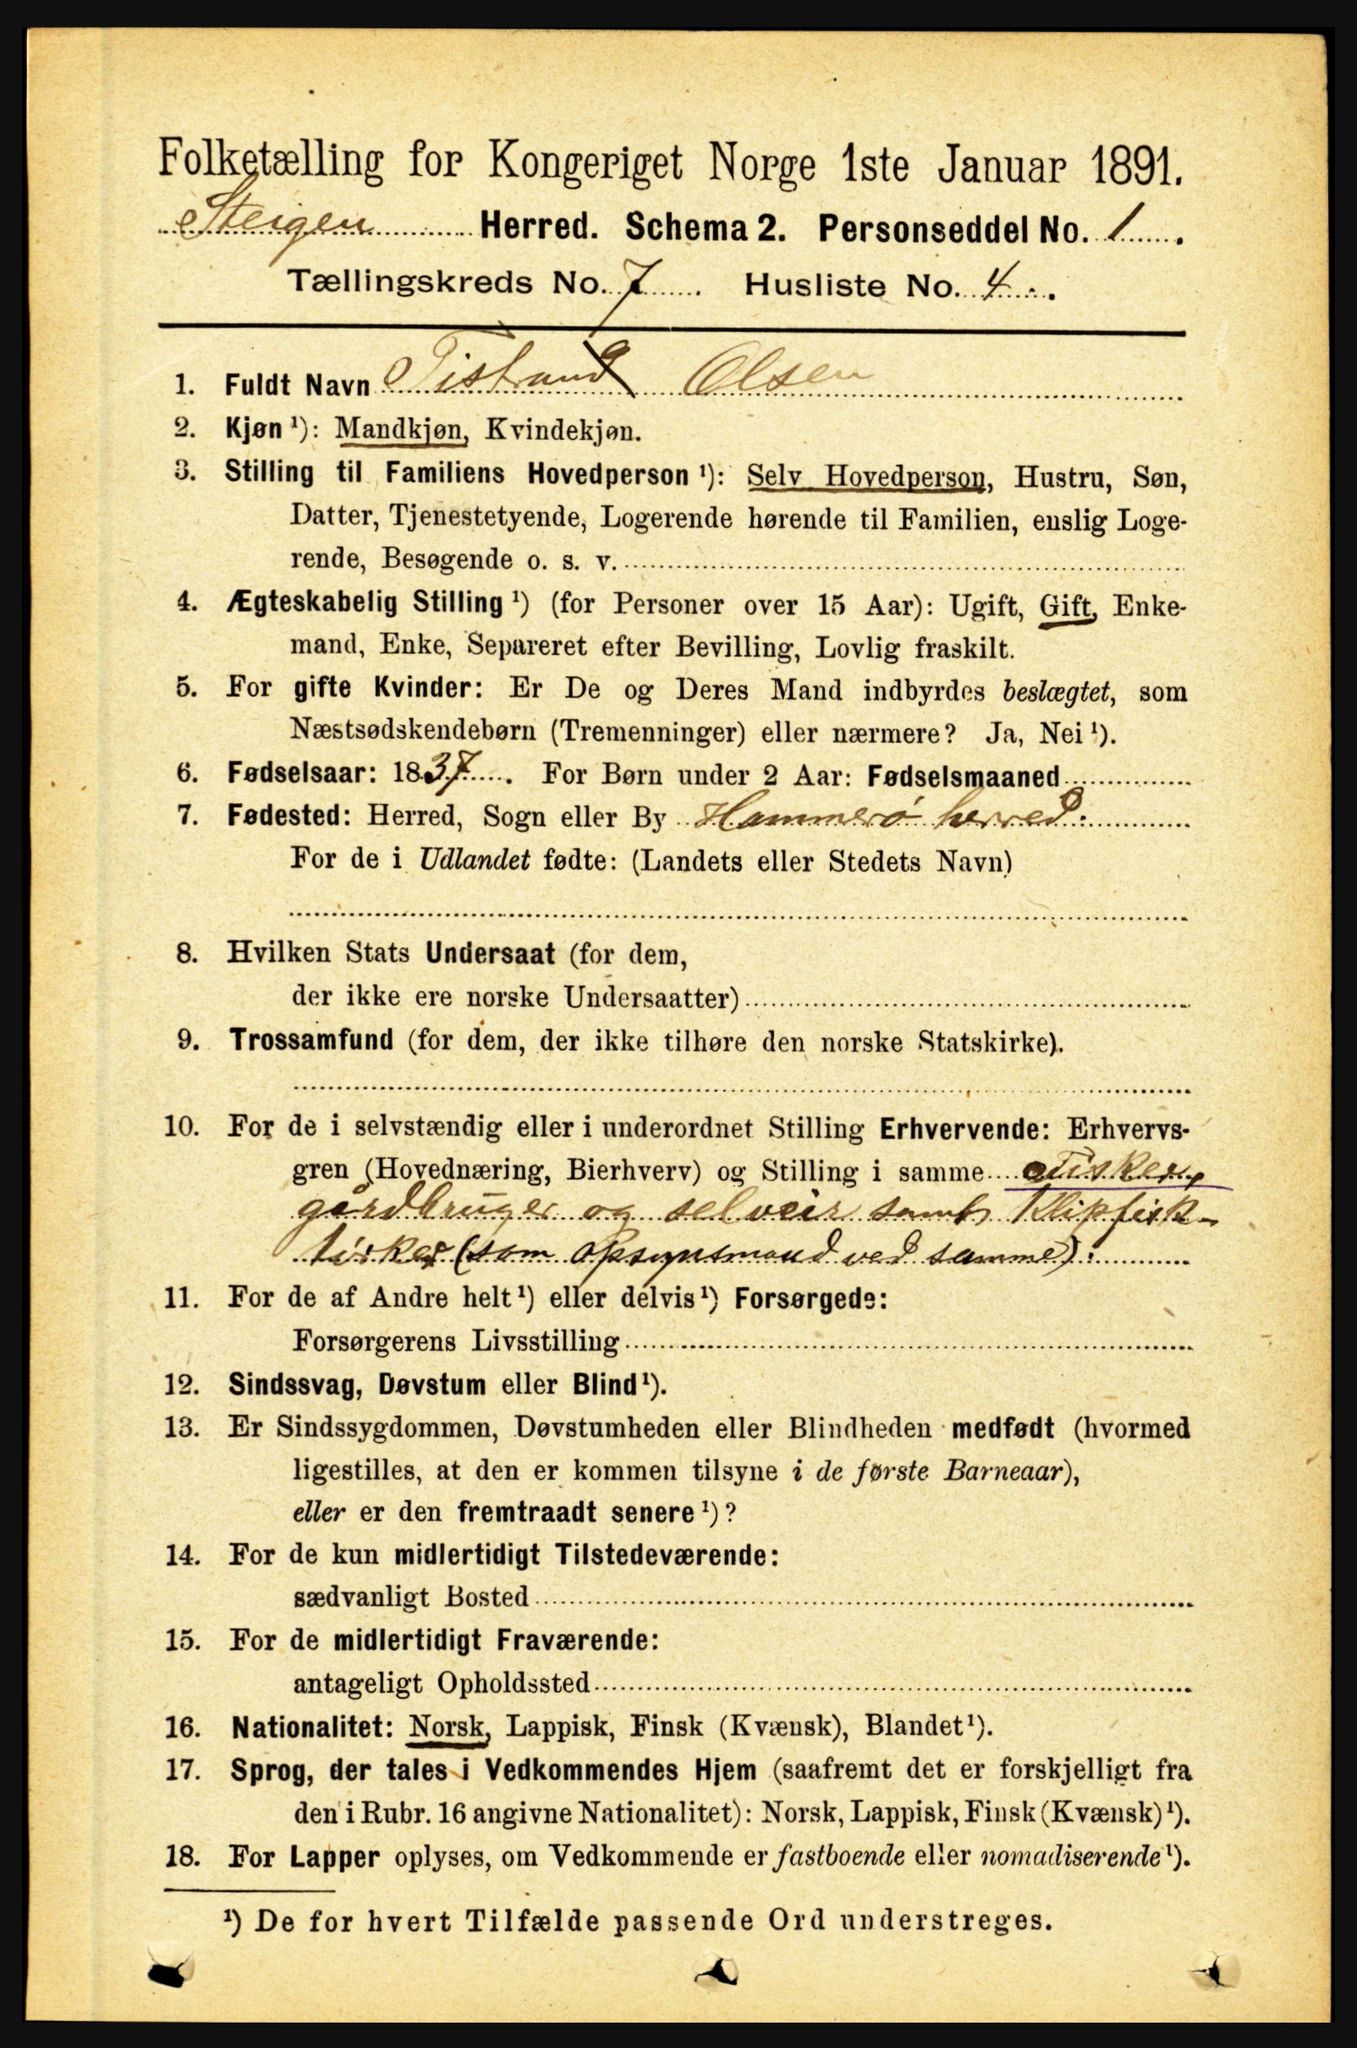 Folketælling for Kongeriget Norge 1ste Januar 1891.
Steigen Herred. Schema 2. Personseddel No. 1.
Tællingskreds No. 7. Husliste No. 4.
1. Fuldt Navn Tistrand Olsen
2. Kjøn ¹): Mandkjøn, Kvindekjøn.
3. Stilling til Familiens Hovedperson ¹): Selv Hovedperson, Hustru, Søn,
Datter, Tjenestetyende, Logerende hørende til Familien, enslig Loge-
rende, Besøgende o. s. v.
4. Ægteskabelig Stilling ¹) (for Personer over 15 Aar): Ugift, Gift, Enke-
mand, Enke, Separeret efter Bevilling, Lovlig fraskilt.
5. For gifte Kvinder: Er De og Deres Mand indbyrdes beslægtet, som
Næstsødskendebørn (Tremenninger) eller nærmere? Ja, Nei ¹).
6. Fødselsaar: 1837. For Børn under 2 Aar: Fødselsmaaned
7. Fødested: Herred, Sogn eller By Hammerø herred.
For de i Udlandet fødte: (Landets eller Stedets Navn)
8. Hvilken Stats Undersaat (for dem,
der ikke ere norske Undersaatter)
9. Trossamfund (for dem, der ikke tilhøre den norske Statskirke).
10. For de i selvstændig eller i underordnet Stilling Erhvervende: Erhvervs-
gren (Hovednæring, Bierhverv) og Stilling i samme Fisker,
gårdbruger og selveir samt Klipfisk-
tirker (som opsynsmand ved samme).
11. For de af Andre helt ¹) eller delvis ¹) Forsørgede:
Forsørgerens Livsstilling
12. Sindssvag, Døvstum eller Blind ¹).
13. Er Sindssygdommen, Døvstumheden eller Blindheden medfødt (hvormed
ligestilles, at den er kommen tilsyne i de første Barneaar),
eller er den fremtraadt senere ¹)?
14. For de kun midlertidigt Tilstedeværende:
sædvanligt Bosted
15. For de midlertidigt Fraværende:
antageligt Opholdssted
16. Nationalitet: Norsk, Lappisk, Finsk (Kvænsk), Blandet ¹).
17. Sprog, der tales i Vedkommendes Hjem (saafremt det er forskjelligt fra
den i Rubr. 16 angivne Nationalitet): Norsk, Lappisk, Finsk (Kvænsk) ¹).
18. For Lapper oplyses, om Vedkommende er fastboende eller nomadiserende ¹).
¹) De for hvert Tilfælde passende Ord understreges.